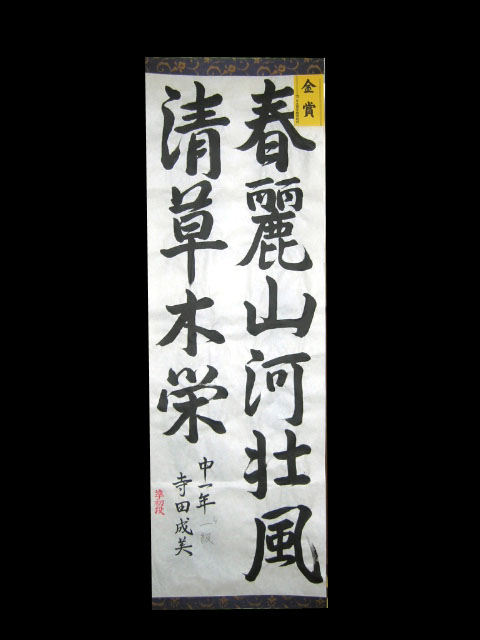 金賞
春麗山河壮風
清草木栄
中一年
一級
寺田成美
準初段